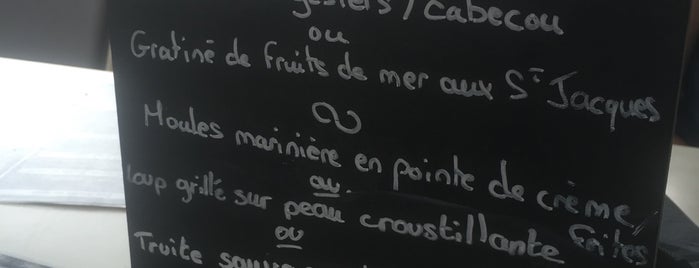 gésiers / cabecou
ou
Gratiné de fruits de mer aux St Jacques
Moules marinière en pointe de crème
ou
Frites
loup grillé sur peau croustillante
ou
Truite